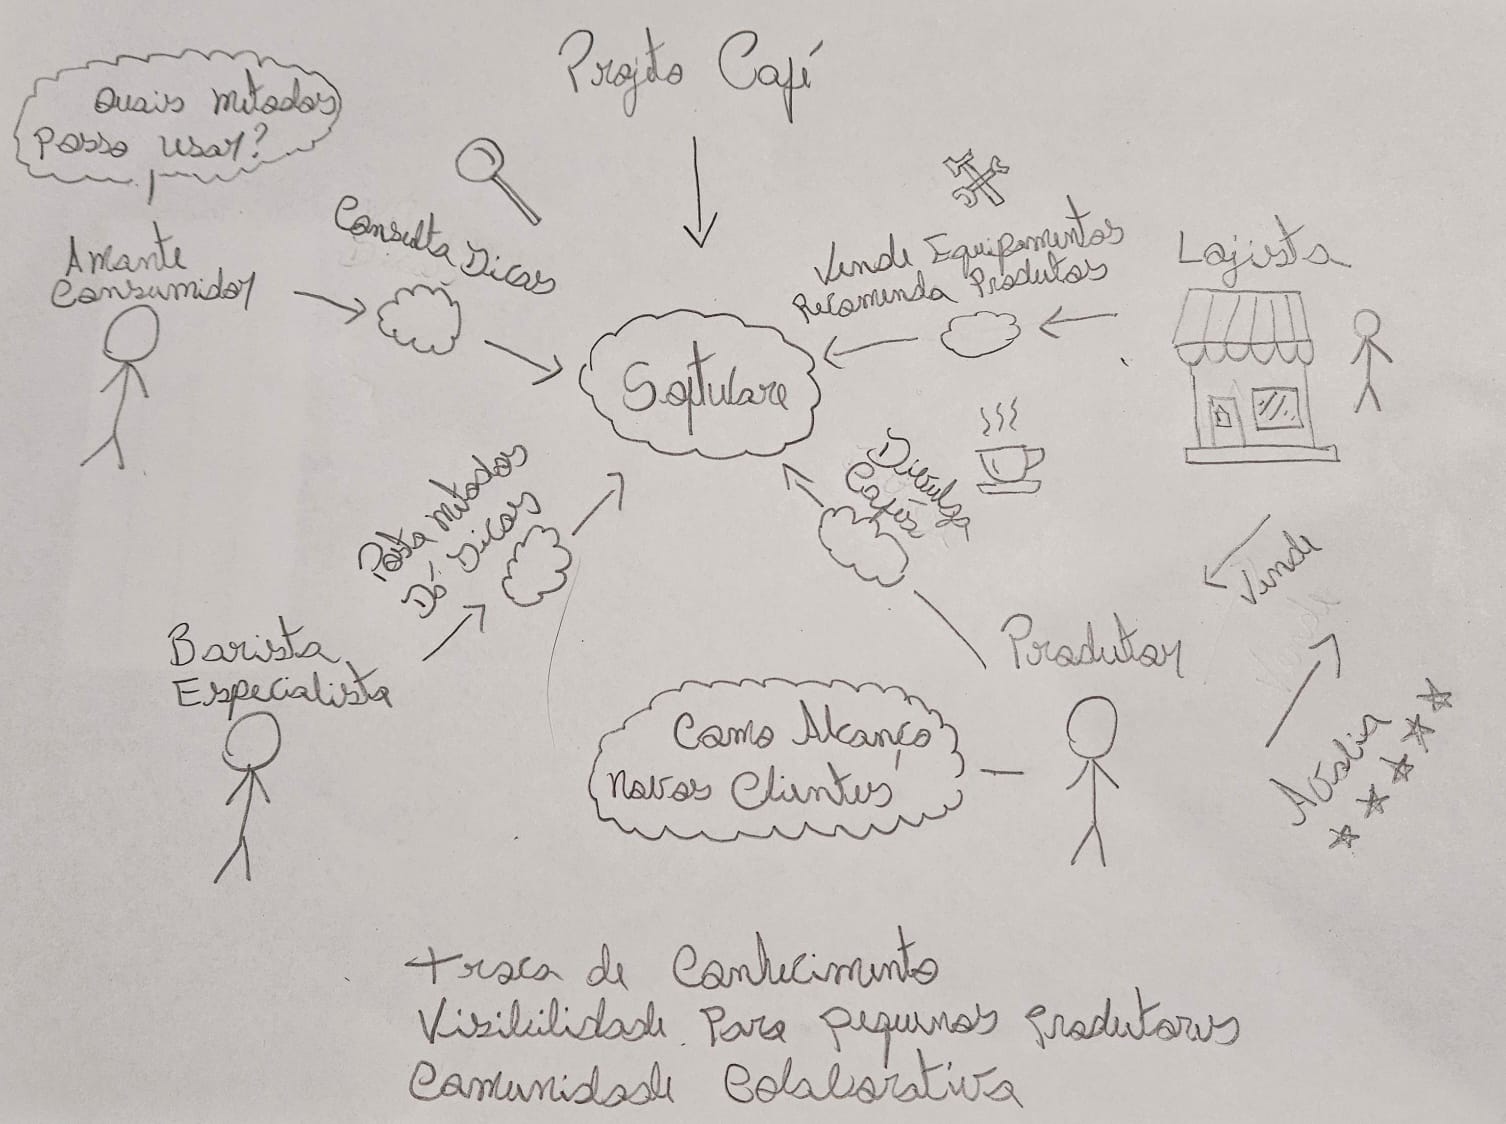 Projeto Café
Quais métodos
posso usar?
Amante
Consumidor
Consulta Dicas
Vende Equipamentos
Recomenda Produtos
Lojista
Software
Posta métodos
Dá Dicas
Divulga
Cafés
Vende
Barista
Especialista
Produtor
Como Alcanço
novos Clientes
Avalia
Troca de Conhecimento
Visibilidade Para pequenos produtores
Comunidade Colaborativa